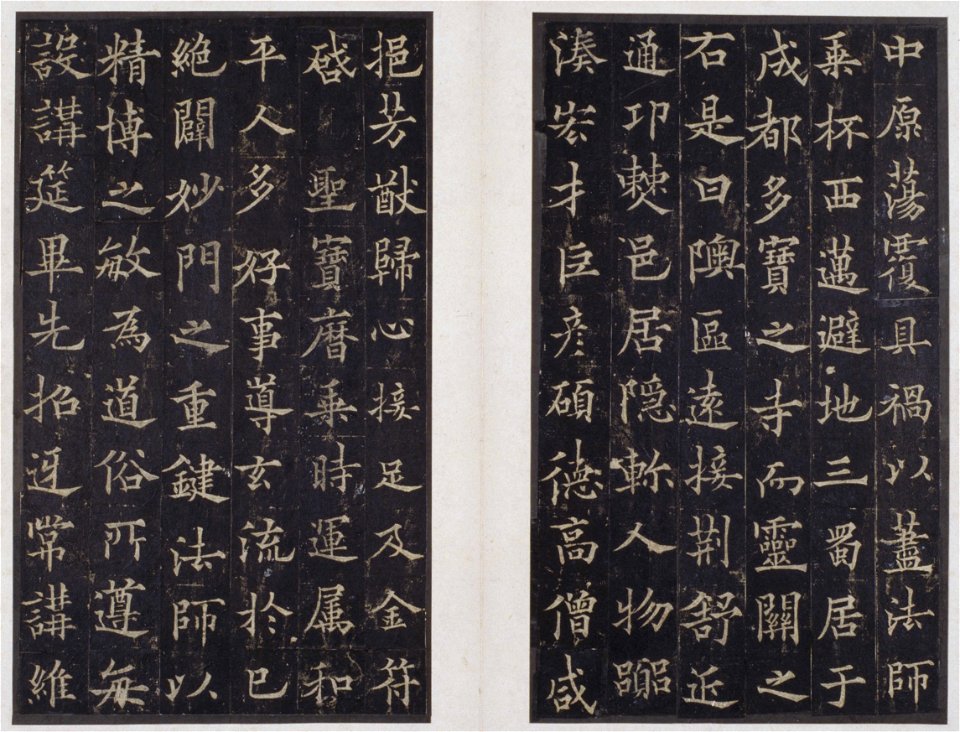 中原蕩覆具禍以藎法師
乗杯西邁避地三蜀居于
成都多寶之寺而靈關之
右是曰隩區遠接荆舒近
通邛僰邑居隠軫人物
湊宏才巨彦碩德高僧咸
挹芳猷歸心接足及金符
啓聖寶曆乗時運属和
平人多好事導玄流於已
絶闢妙門之重鍵法師以
精博之敏為道俗所遵每
設講筵畢先招迓常講維